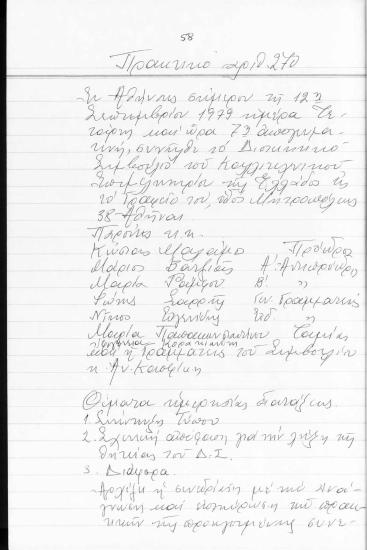 58
Πρακτικό αριθ. 270
Στ Αθήνας σήμερον τη 12η
Σεπτεμβρίου 1979 ημέρα Τε-
τάρτη και ώρα 7η απογευμα-
τινή, συνήλθε το Διοικητικό
Συμβούλιο του Καλλιτεχνικού
Επιμελητηρίου της Ελλάδος εις
τα Γραφεία του, οδός Μητροπόλεως
38 Αθήνας
Παρόντες κ.κ.
Κώστας Μαλάμος Πρόεδρος
Μάριος Α' Αντιπρόεδρος
Μαρία Β' "
Φώτης Γεν. Γραμματεύς
Νίκος
Μαρία Παπακωνσταντίνου Ταμίας
και η Γραμματεύς του Συμβουλίου
κ Αν.
Θέματα ημερησίας διατάξεως
1. Συνέντευξις Τύπου
2. Σχετική απόφαση για την λήξη της
θητείας του Δ.Σ.
3. Διάφορα.
Αρχίζει η συνεδρίαση με την ανά-
γνωση και επικύρωση των πρακ-
τικών της προηγουμένης συνε-